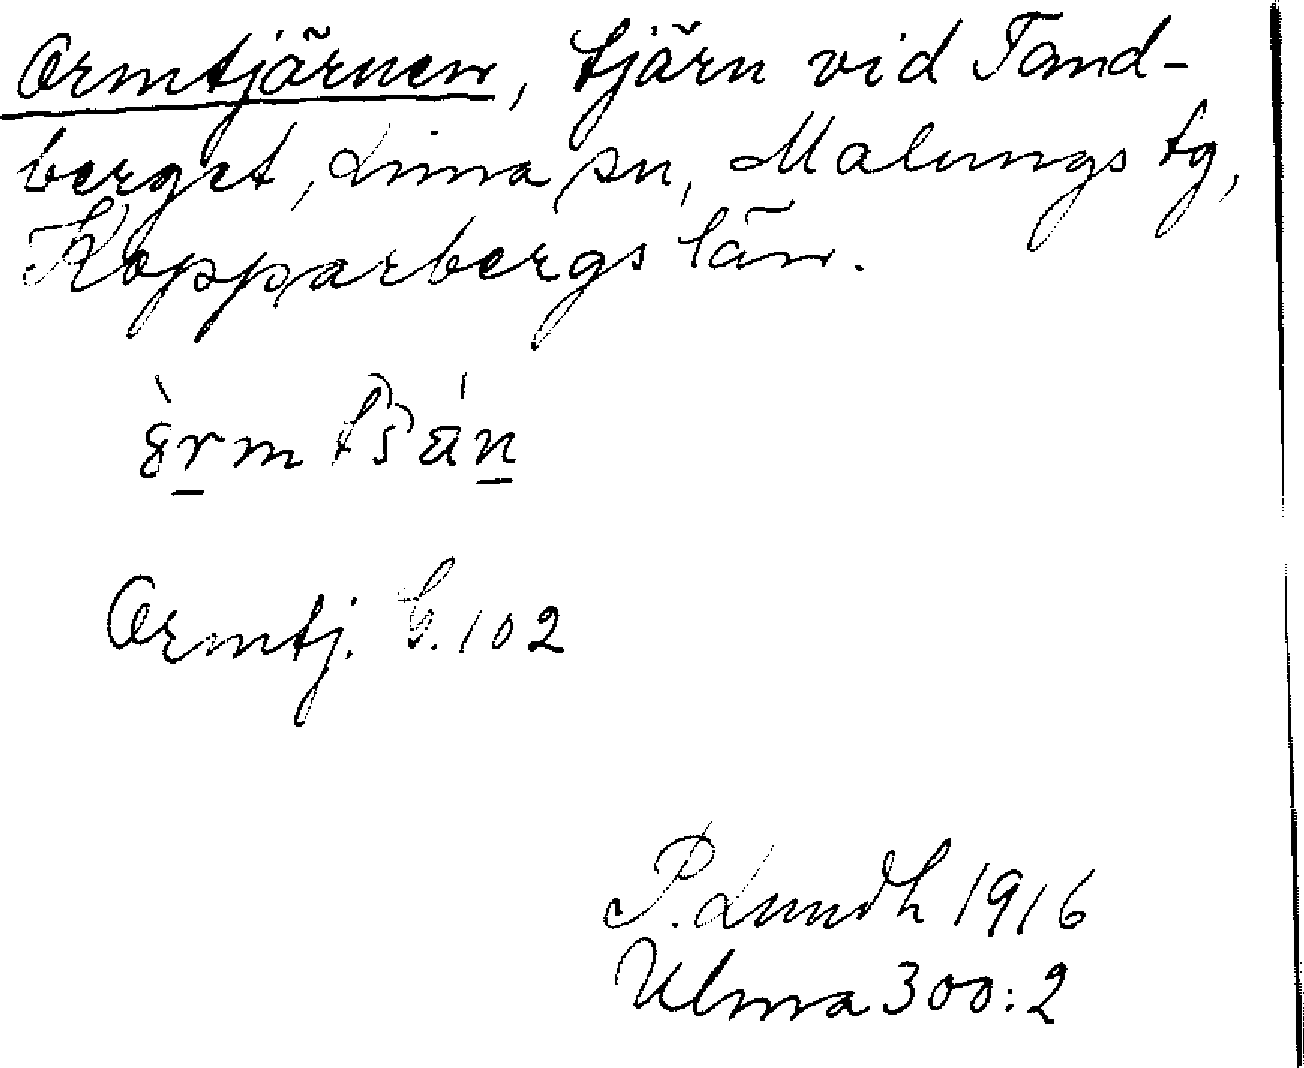 Ormtjärnen, tjärn vid Tand-
berget, Lima sn, Malungs tg,
Kopparbergs län.
Ormtj. G. 102
P. Lundh 1916
Ulma 300:2